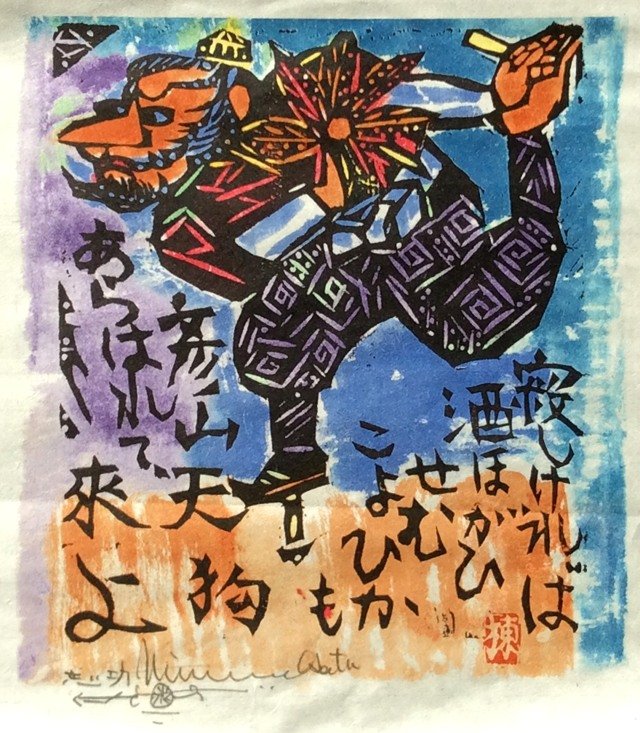 寂しければ
酒ほがひ
せむ
こよひか
も
彦山天狗
あらはれて
來よ
棟
志功 Munakata